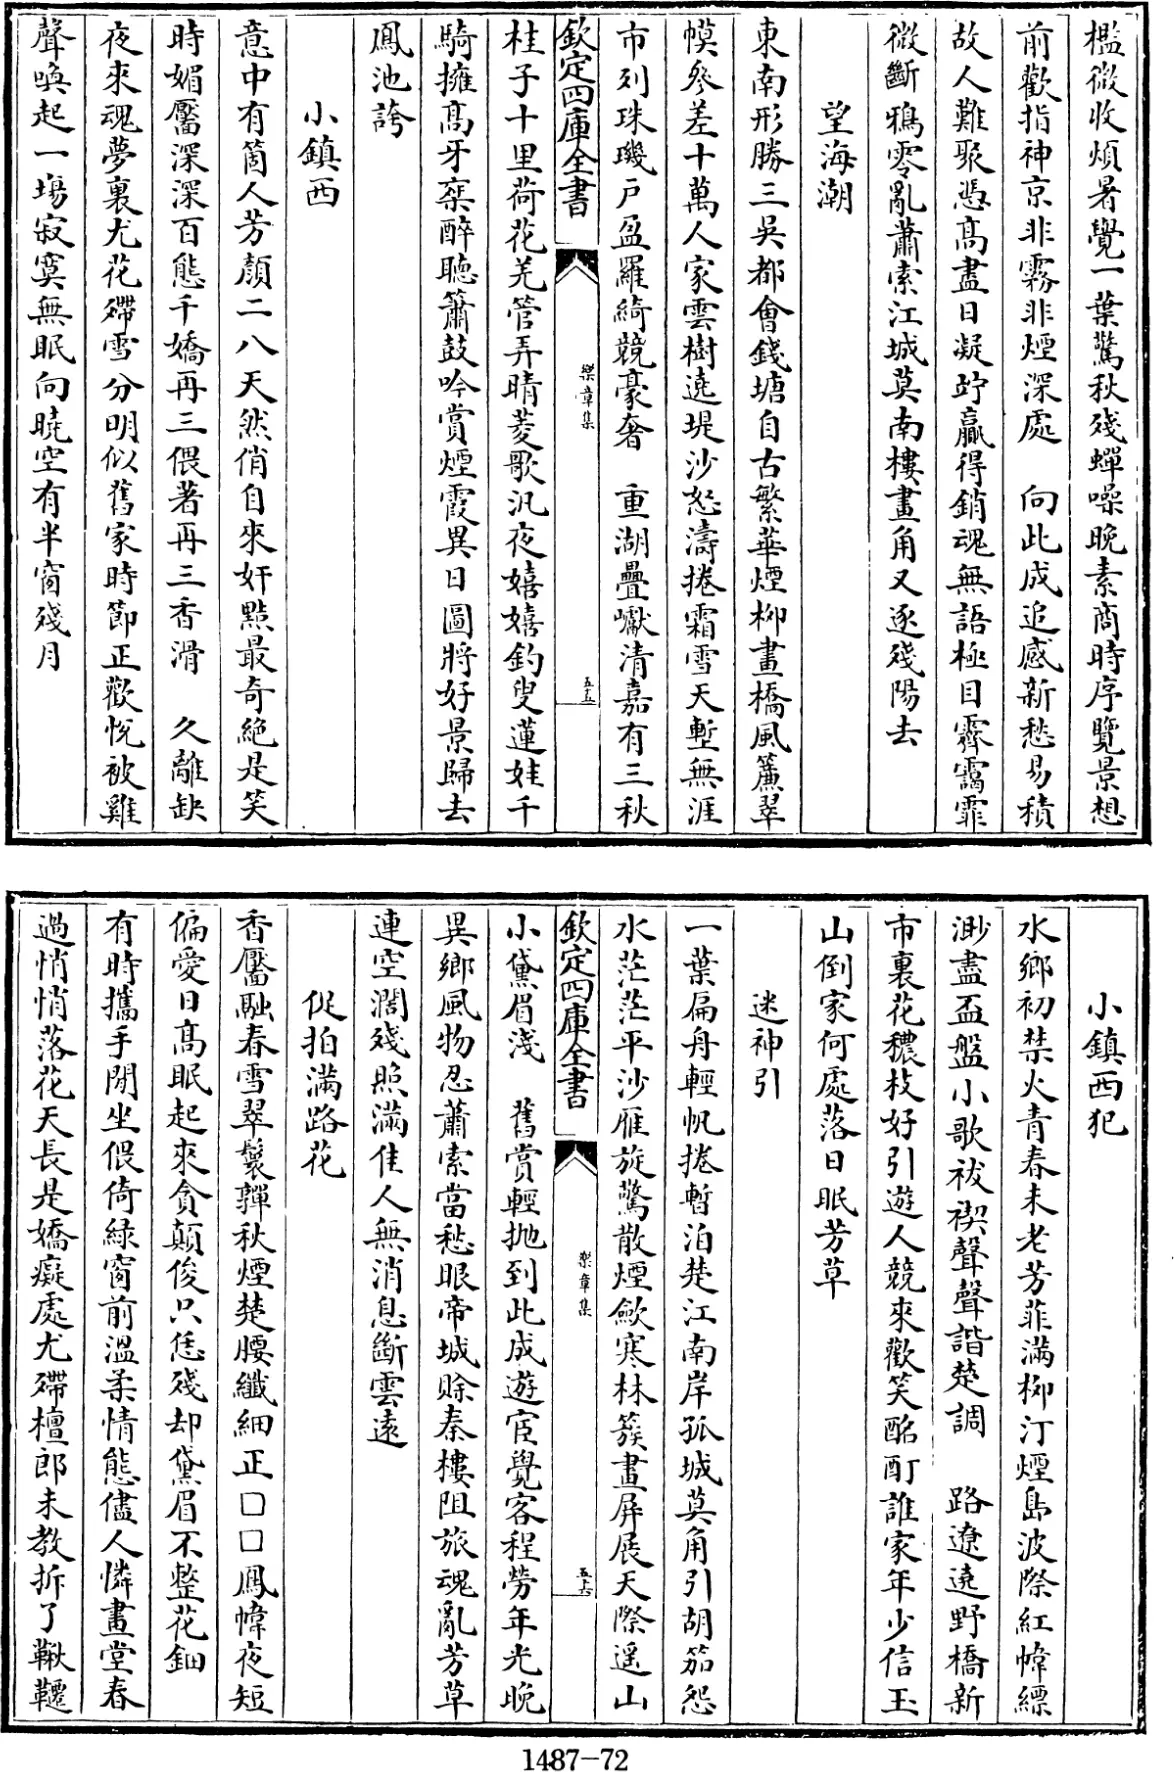 檻微收煩暑覺一葉驚秋殘蟬噪晚素商時序覽景想
前歡指神京非霧非煙深處　向此成追感新愁易積
故人難聚憑高盡日凝竚贏得銷魂無語極目霽靄霏
微斷鴉零亂蕭索江城莫南樓畫角又逐殘陽去
望海潮
東南形勝三吳都會錢塘自古繁華煙柳畫橋風簾翠
幙參差十萬人家雲樹遶堤沙怒濤捲霜雪天塹無涯
市列珠璣戶盈羅綺競豪奢　重湖疊巘清嘉有三秋
欽定四庫全書
樂章集
五五
桂子十里荷花羌管弄晴菱歌汎夜嬉嬉釣叟蓮娃千
騎擁高牙乘醉聽簫鼓吟賞煙霞異日圖將好景歸去
鳳池誇
小鎮西
意中有箇人芳顏二八天然俏自來奸黠最奇絶是笑
時媚靨深深百態千嬌再三偎著再三香滑　久離缺
夜來魂夢裏尤花殢雪分明似舊家時節正歡悅被雞
聲喚起一場寂寞無眠向曉空有半窗殘月
小鎮西犯
水鄉初禁火青春未老芳菲滿柳汀煙島波際紅幃縹
渺盡盃盤小歌祓禊聲聲諧楚調　路遼遶野橋新
市裏花穠枝好引遊人競來歡笑酩酊誰家年少信玉
山倒家何處落日眠芳草
迷神引
一葉扁舟輕帆捲暫泊楚江南岸孤城莫角引胡笳怨
水茫茫平沙雁旋驚散煙斂寒林簇畫屏展天際遥山
欽定四庫全書
樂章集
五六
小黛眉淺　舊賞輕抛到此成遊宦覺客程勞年光晚
異鄉風物忍蕭索當愁眼帝城賒秦樓阻旅魂亂芳草
連空濶殘照滿佳人無消息斷雲遠
促拍滿路花
香靨融春雪翠鬢嚲秋煙楚腰纖細正□□鳳幃夜短
偏愛日高眠起來貪顛俊只恁殘却黛眉不整花鈿
有時攜手閒坐偎倚綠窗前溫柔情態儘人憐畫堂春
過悄悄落花天長是嬌癡處尤殢檀郎未教拆了鞦韆
1487-72